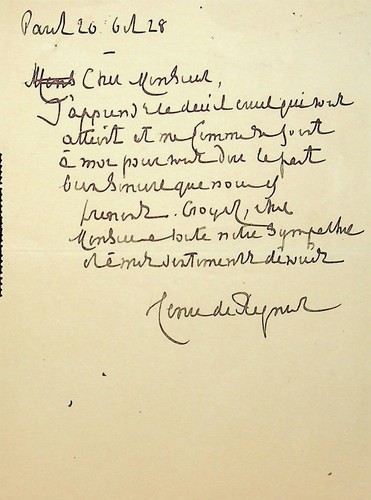 Paris 20 Oct 28
Mons Cher Monsieur,
J'apprends le deuil cruel qui vous
atteint et ma femme se joint
à moi pour vous dire la part
bien sincère que nous y
prenons. Croyez, cher
Monsieur à toute notre sympathie
et à mes sentiments dévoués
Henri de Régnier